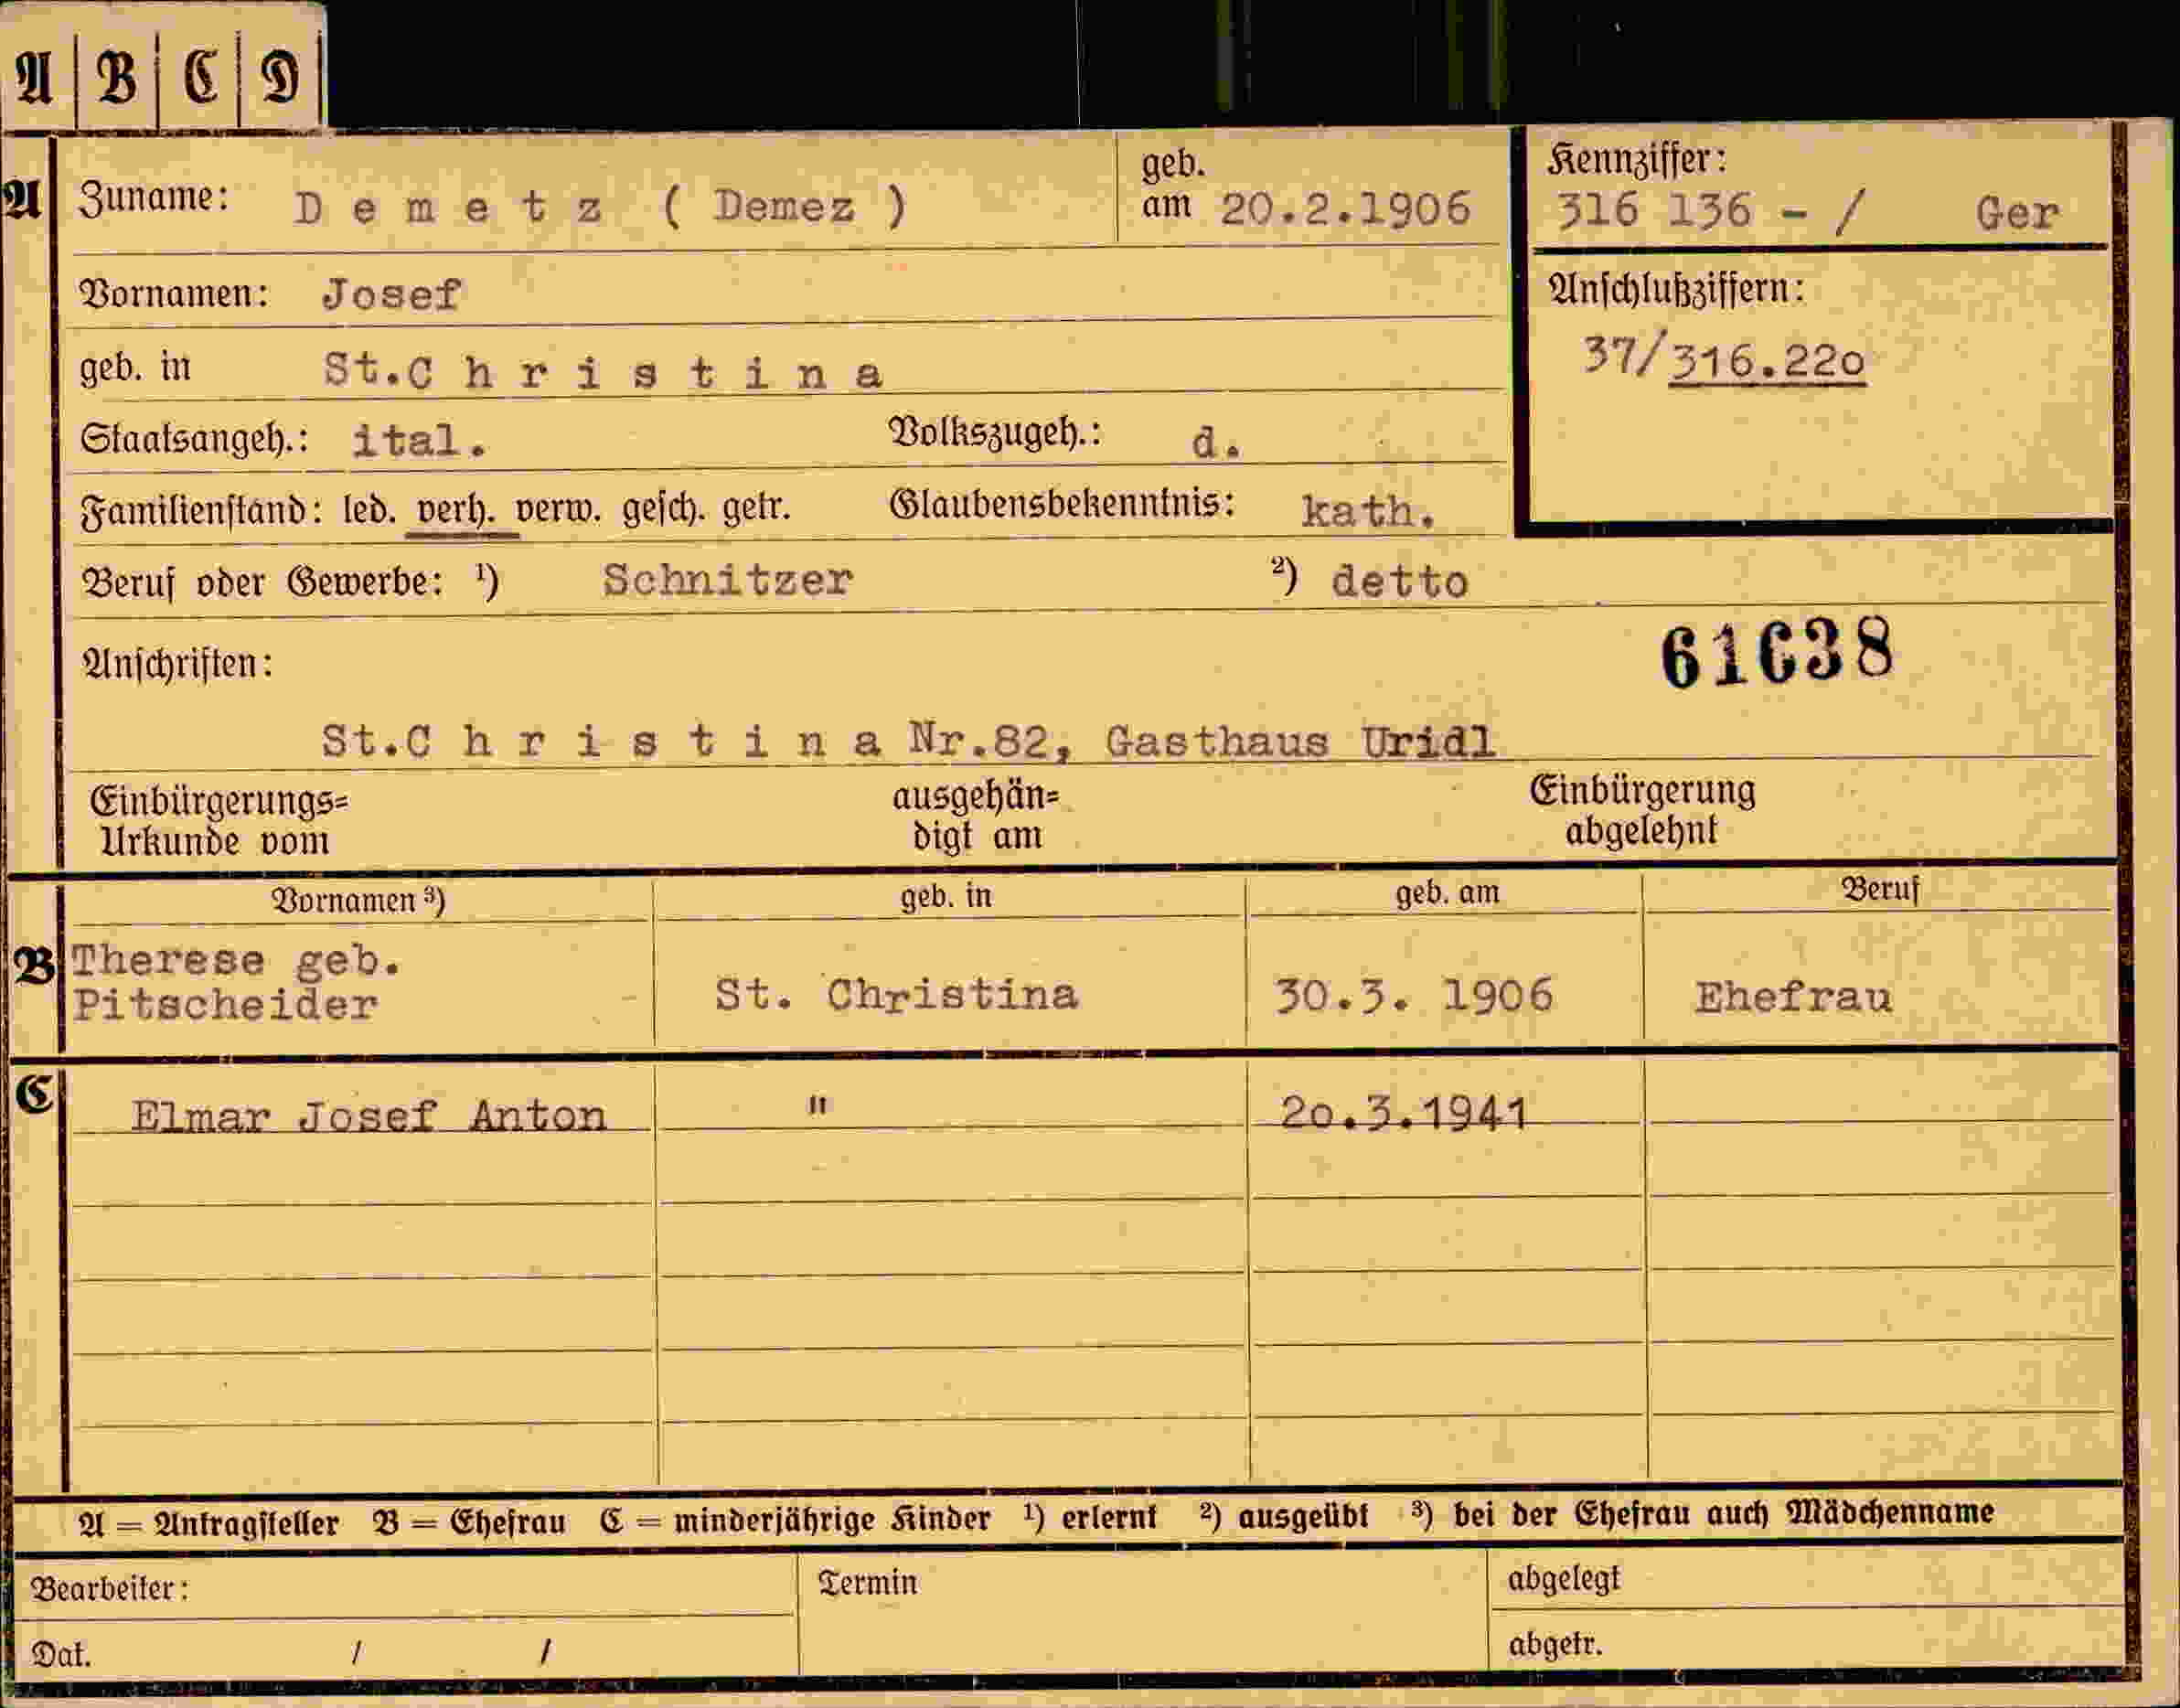 A B C D
A Zuname: Demetz ( Demez ) geb. am 20.2.1906
Kennziffer:
316 136 - / Ger
Vornamen: Josef
Anschlußziffern:
37/316.22o
geb. in St.Christina
Staatsangeh.: ital. Volkszugeh.: d.
Familienstand: led. verh. verw. gesch. getr. Glaubensbekenntnis: kath.
Beruf oder Gewerbe: ¹) Schnitzer ²) detto
61638
Anschriften:
St.Christina Nr.82, Gasthaus Uridl
Einbürgerungs= ausgehän= Einbürgerung
Urkunde vom digt am abgelehnt
Vornamen ³) geb. in geb. am Beruf
B Therese geb.
Pitscheider St. Christina 30.3. 1906 Ehefrau
C Elmar Josef Anton " 2o.3.1941
A = Antragsteller B = Ehefrau C = minderjährige Kinder ¹) erlernt ²) ausgeübt ³) bei der Ehefrau auch Mädchenname
Bearbeiter: Termin abgelegt
Dat. / / abgetr.